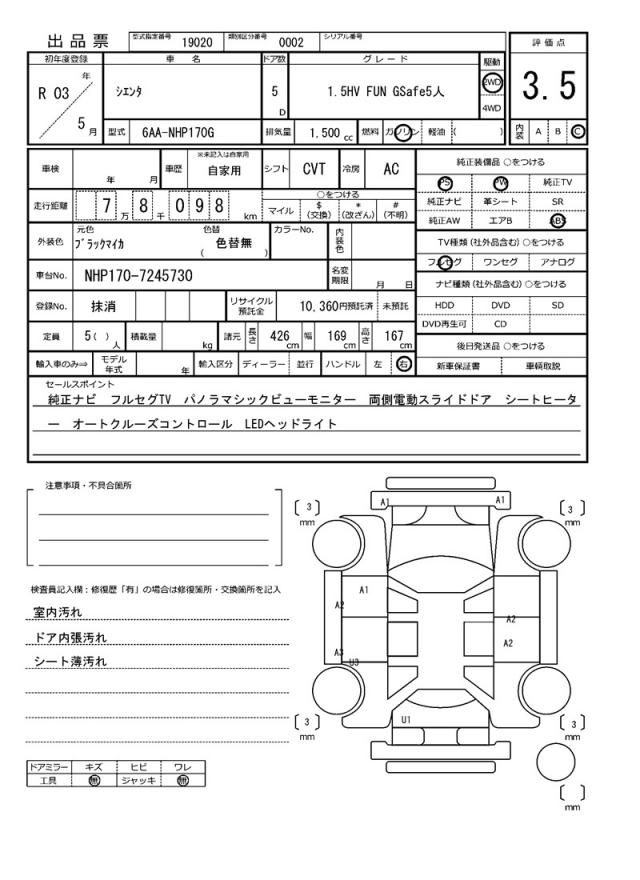 出品票
型式指定番号 19020 類別区分番号 0002 シリアル番号
評価点
3.5
内装 A B C
初年度登録 車名 ドア数 グレード 駆動
R 03 年 5 月
シエンタ 5 D 1.5HV FUN GSafe5人 2WD 4WD
型式 6AA-NHP170G 排気量 1.500 cc 燃料 ガソリン 軽油 ( )
車検 年 月 車歴 ※未記入は自家用 自家用 シフト CVT 冷房 AC
走行距離 7 万 8 千 0 9 8 km ○をつける
マイル $(交換) *(改ざん) #(不明)
外装色 元色 ブラックマイカ 色替 ( 色替無 ) カラーNo. 内装色
車台No. NHP170-7245730 名変期限 月 日
登録No. 抹消 リサイクル預託金 10,360円預託済 未預託
定員 5( ) 人 積載量 kg 諸元 長さ 426 cm 幅 169 cm 高さ 167 cm
輸入車のみ⇒ モデル年式 年 輸入区分 ディーラー 並行 ハンドル 左 右
純正装備品 ○をつける
PS PW 純正TV
純正ナビ 革シート SR
純正AW エアB ABS
TV種類(社外品含む) ○をつける
フルセグ ワンセグ アナログ
ナビ種類(社外品含む) ○をつける
HDD DVD SD
DVD再生可 CD
後日発送品 ○をつける
新車保証書 車輌取説
セールスポイント
純正ナビ フルセグTV パノラマシックビューモニター 両側電動スライドドア シートヒータ
ー オートクルーズコントロール LEDヘッドライト
注意事項・不具合箇所
検査員記入欄：修復歴「有」の場合は修復箇所・交換箇所を記入
室内汚れ
ドア内張汚れ
シート薄汚れ
ドアミラー キズ ヒビ ワレ
工具 無 ジャッキ 無
[ 3 ] mm A1 A1 [ 3 ] mm
A1
A2 A2
A2
A3 U3
[ 3 ] mm U1 [ 3 ] mm
[ ] mm